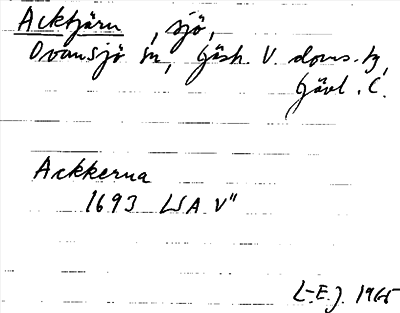 Acktjärn, sjö,
Ovansjö sn, Gästr. V. doms. tg,
Gävl. l.
Ackkerna
1693 LSA V"
L-E.J. 1965